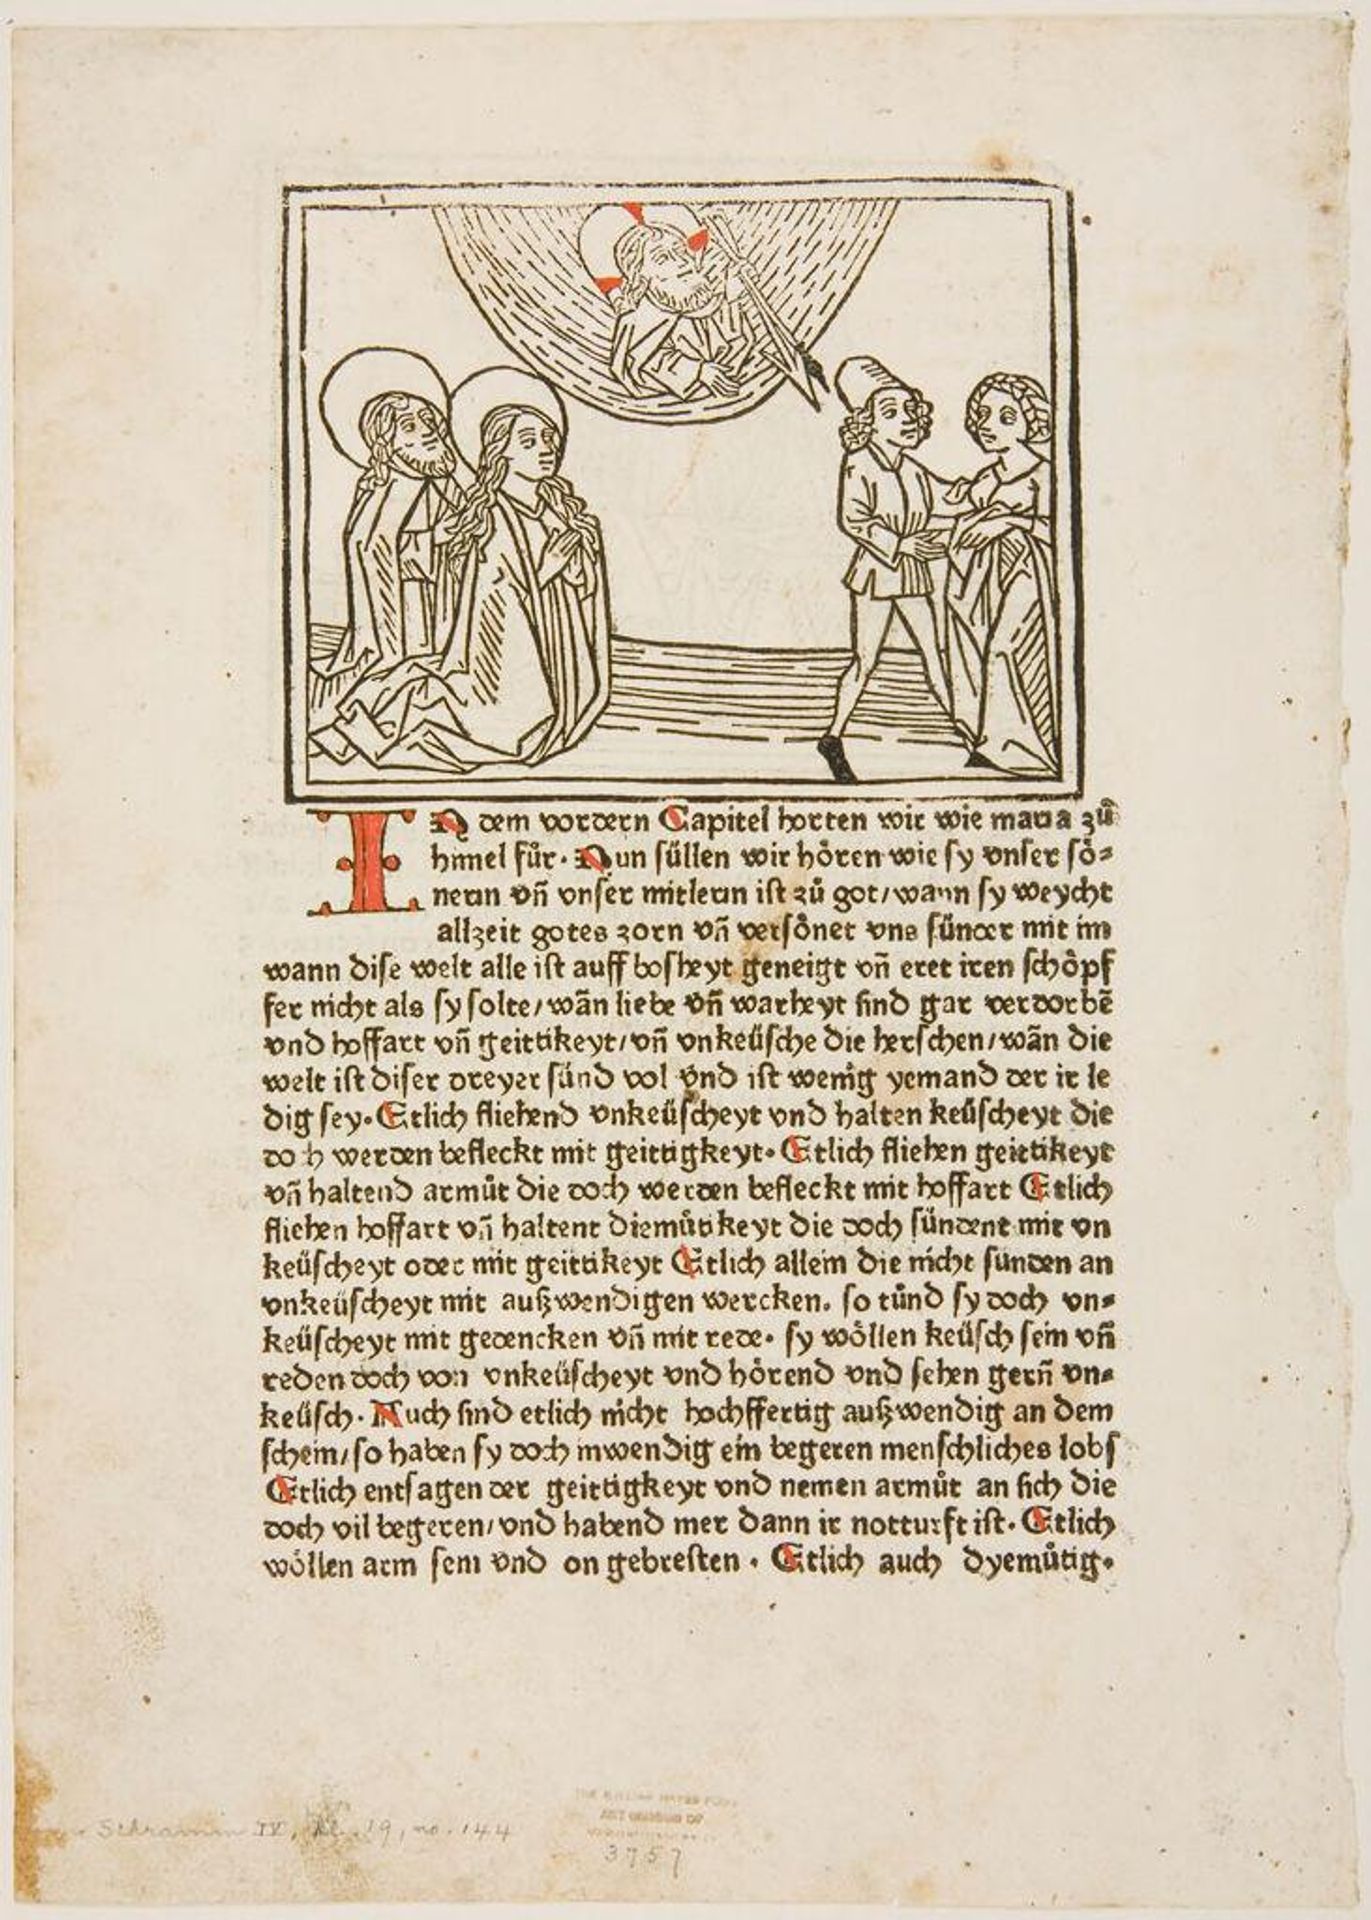 IN dem vordern Capitel horten wir wie maria zů
himel fůr. Nun süllen wir hören wie sy vnser sö⸗
nerin vñ vnser mitlerin ist zů got/wann sy weycht
allzeit gotes zorn vñ versönet vns sünder mit im
wann dise welt alle ist auff bosheyt geneigt vñ eret iren schöpf
fer nicht als sy solte/wãn liebe vñ warheyt sind gar verdorbẽ
vnd hoffart vñ geittikeyt/vñ vnkeüsche die herschen/wãn die
welt ist diser dreyer sünd vol vnd ist wenig yemand der ir le
dig sey. Etlich fliehend vnkeüscheyt vnd halten keüscheyt die
doch werden befleckt mit geittigkeyt. Etlich fliehen geittikeyt
vñ haltend armůt die doch werden befleckt mit hoffart Etlich
fliehen hoffart vñ haltent diemůtikeyt die doch sündent mit vn
keüscheyt oder mit geittikeyt Etlich allein die nicht sunden an
vnkeüscheyt mit außwendigen wercken. so tůnd sy doch vn⸗
keüscheyt mit gedencken vñ mit rede. sy wöllen keüsch sein vñ
reden doch von vnkeüscheyt vnd hörend vnd sehen gern̄ vn⸗
keüsch. Auch sind etlich nicht hochffertig außwendig an dem
schein/so haben sy doch inwendig ein begeren menschliches lobs
Etlich entsagen der geittigkeyt vnd nemen armůt an sich die
doch vil begeren/vnd habend mer dann ir notturft ist. Etlich
wöllen arm sein vnd on gebresten. Etlich auch dyemůtig⸗
Schramm IV, pl. 19, no. 144
3757